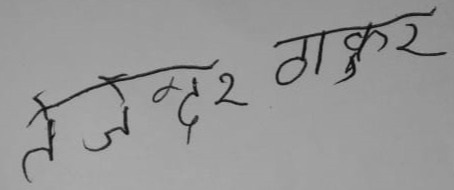 तेजेन्दर ठाकुर